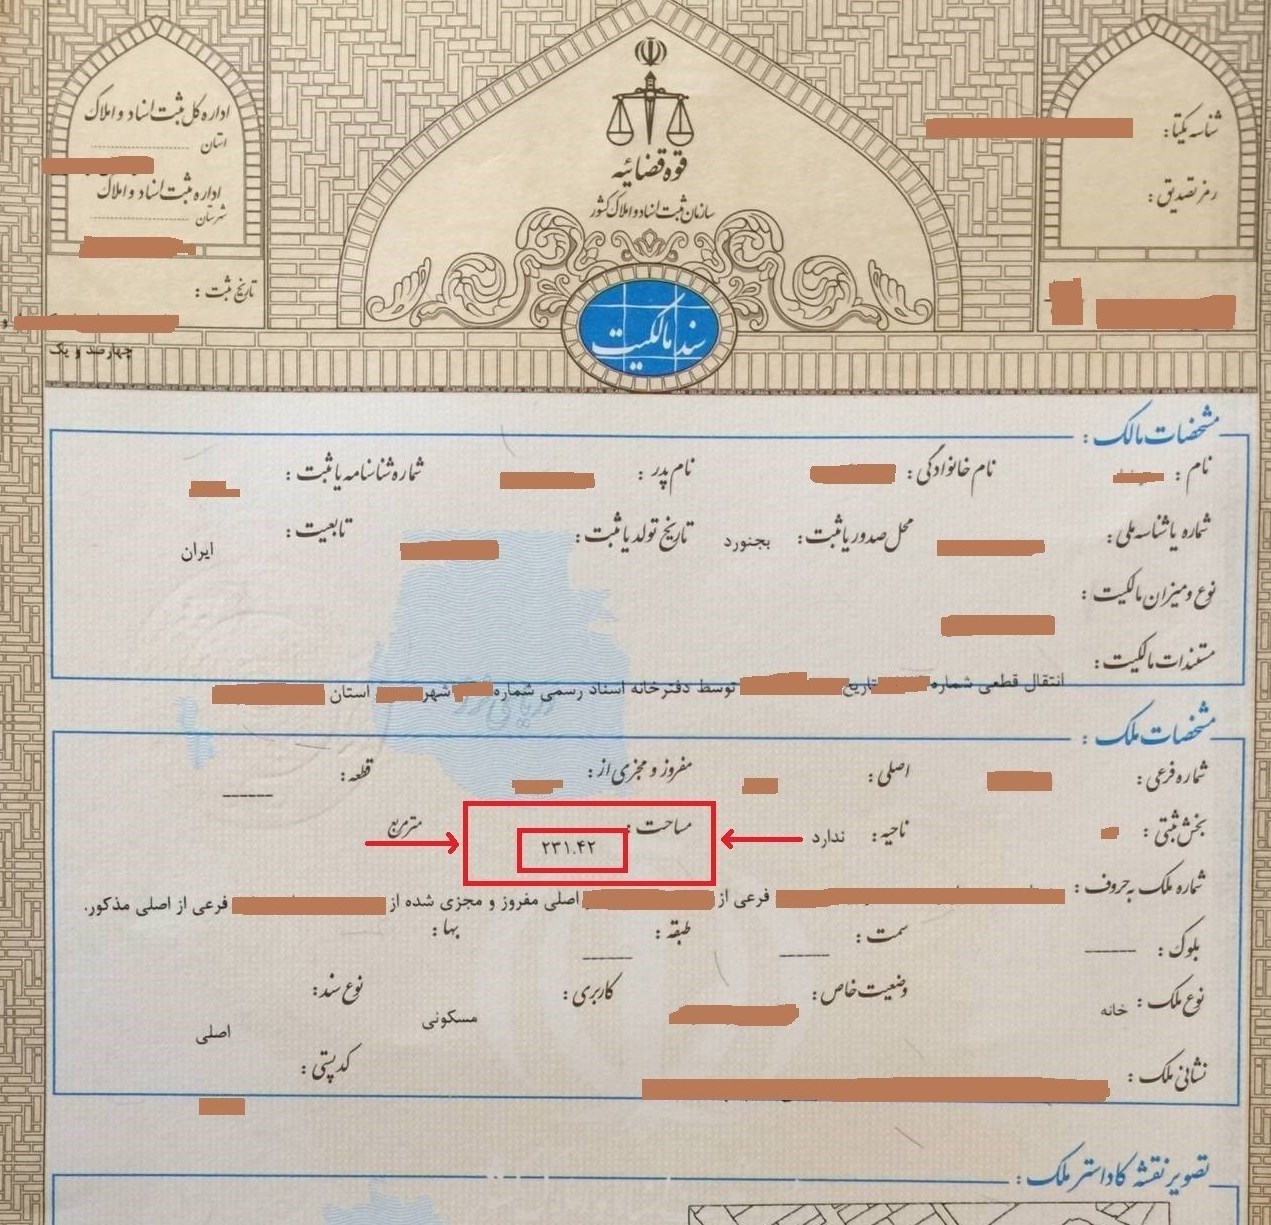 اداره کل ثبت اسناد و املاک
استان
اداره ثبت اسناد و املاک
شهرستان
تاریخ ثبت :
چهارصد و یک
قوه قضائیه
سازمان ثبت اسناد و املاک کشور
سند مالکیت
شناسه یکتا :
رمز تصدیق :
مشخصات مالک :
نام : نام خانوادگی : نام پدر : شماره شناسنامه یا ثبت :
شماره یا شناسه ملی : محل صدور یا ثبت : بجنورد تاریخ تولد یا ثبت : تابعیت : ایران
نوع و میزان مالکیت :
مستندات مالکیت :
انتقال قطعی شماره تاریخ توسط دفترخانه اسناد رسمی شماره شهر استان
مشخصات ملک :
شماره فرعی : اصلی : مفروز و مجزی از : قطعه :
بخش ثبتی : ناحیه : ندارد مساحت : ۲۳۱.۴۲ مترمربع
شماره ملک به حروف : فرعی از اصلی مفروز و مجزی شده از فرعی از اصلی مذکور.
بلوک : سمت : طبقه : بها :
نوع ملک : خانه وضعیت خاص : کاربری : مسکونی نوع سند : اصلی
نشانی ملک : کد پستی :
تصویر نقشه کاداستر ملک :